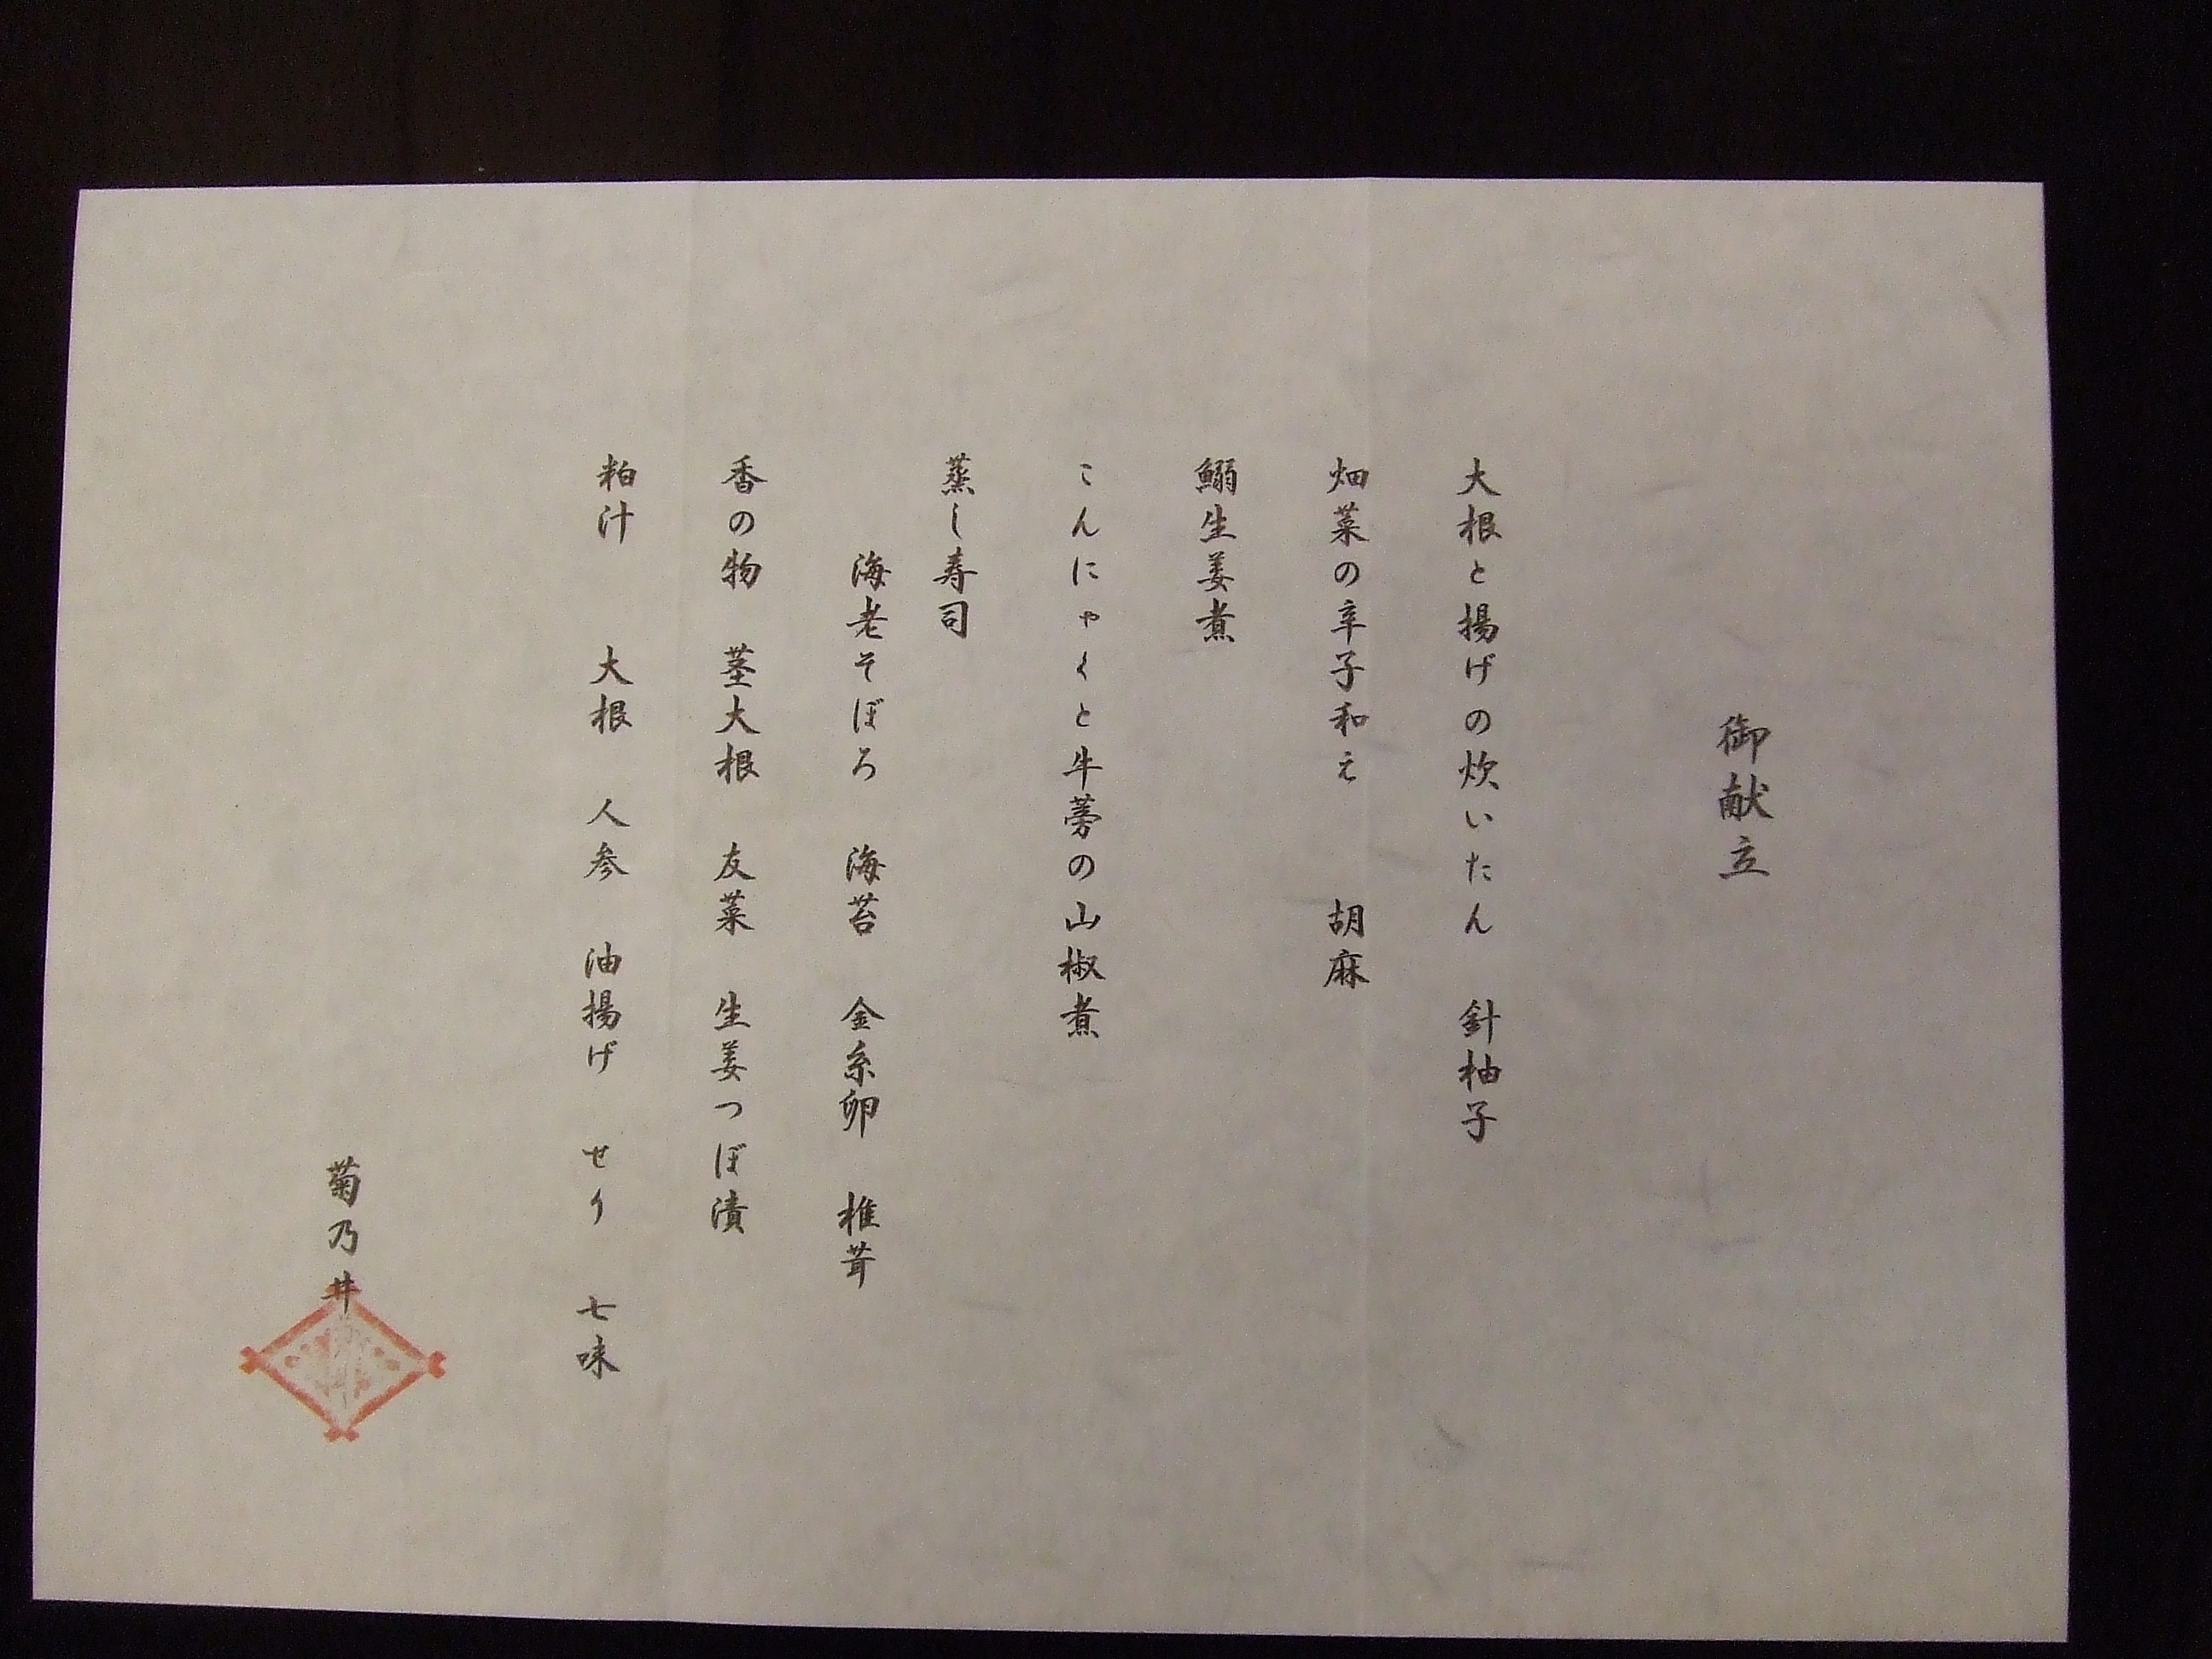 御献立
大根と揚げの炊いたん　針柚子
畑菜の辛子和え　胡麻
鰯生姜煮
こんにゃくと牛蒡の山椒煮
蒸し寿司
海老そぼろ　海苔　金糸卵　椎茸
香の物　茎大根　友菜　生姜つぼ漬
粕汁　大根　人参　油揚げ　せり　七味
菊乃井